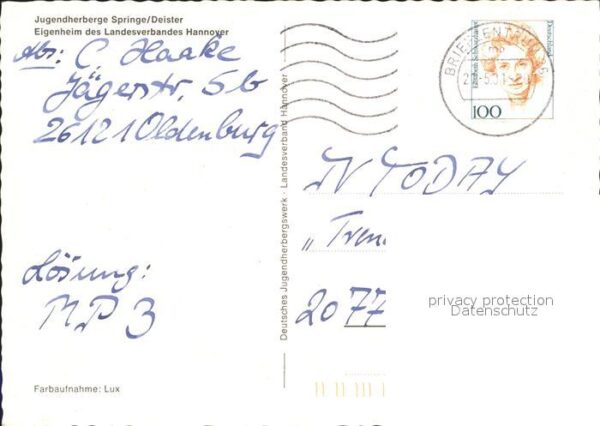 Jugendherberge Springe/Deister
Eigenheim des Landesverbandes Hannover
Abs: C. Haake
Jägerstr. 5b
26121 Oldenburg
Lösung:
MP3
Farbaufnahme: Lux
Deutsches Jugendherbergswerk · Landesverband Hannover
BRIEFZENTRUM
Deutschland
100
TV TODAY
„Tren
2077
privacy protection
Datenschutz